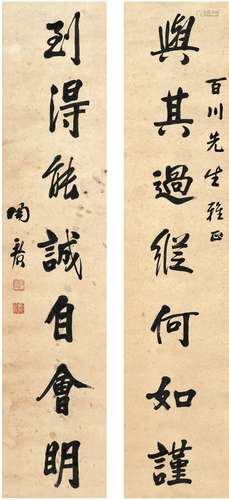 百川先生雅正
與其過縱何如謹
到得能誠自會明